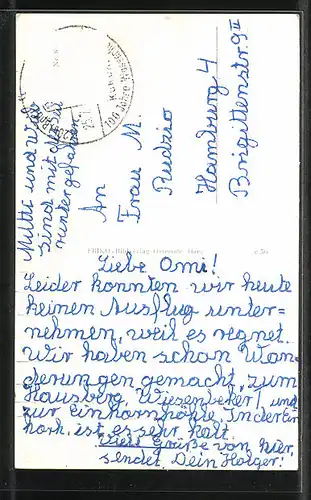 An
Frau M.
Rudzio
Hamburg 4
Brigittenstr. 9 II
100 Jahre
Mutti und wir
sind mit dem
runtergefallen.
Liebe Omi!
Leider konnten wir heute
keinen Ausflug unter=
nehmen, weil es regnet.
Wir haben schon Wan=
derungen gemacht, zum
Hausberg, Wiesenbeker, und
zur Einhornhöhle. In der Ein
horh. ist es sehr kalt.
Viele Grüße von hier
sendet Dein Holger!